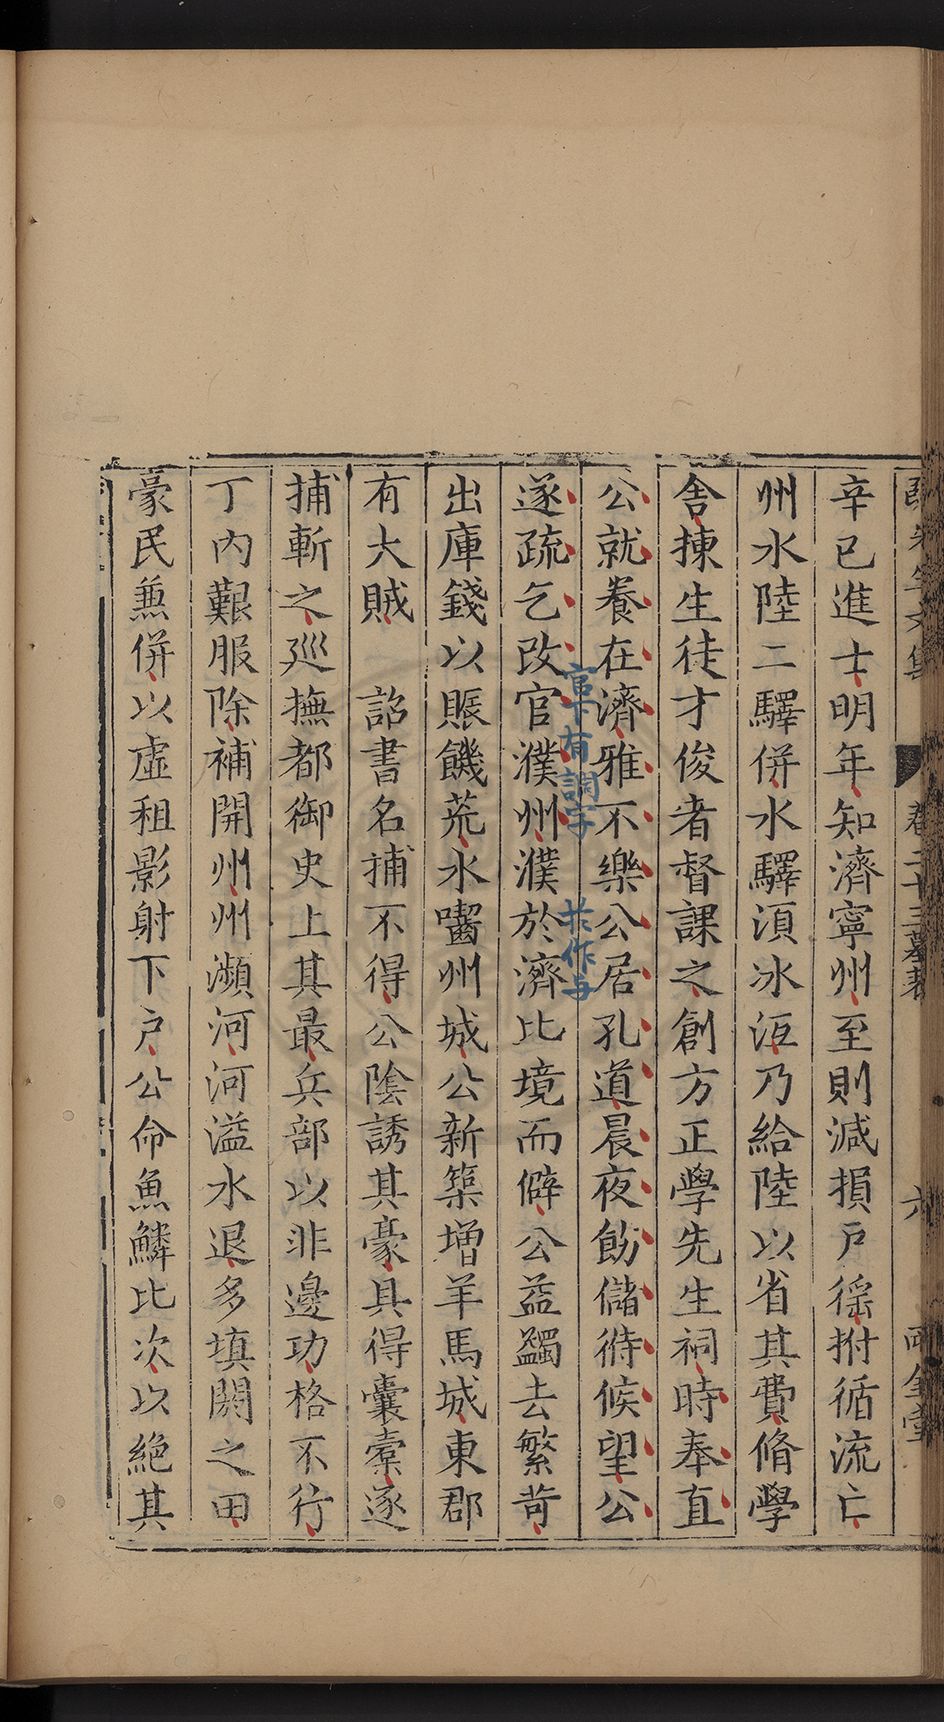 卷二十三墓表
六
辛巳進士明年知濟寧州至則減損戸徭拊循流亡
州水陸二驛併水驛湏冰沍乃給陸以省其費脩學
舎揀生徒才俊者督課之創方正學先生祠時奉直
公就養在濟雅不樂公居孔道晨夜飭儲偫候望公
遂疏乞改官濮州濮於濟比境而僻公益蠲去繁苛
官下有調字
共作与
出庫錢以賑饑荒水嚙州城公新築增羊馬城東郡
有大賊　詔書名捕不得公陰誘其豪具得囊橐遂
捕斬之廵撫都御史上其最兵部以非邊功格不行
丁內艱服除補開州州瀕河河溢水退多填閼之田
豪民兼併以虛租影射下戸公命魚鱗比次以絕其